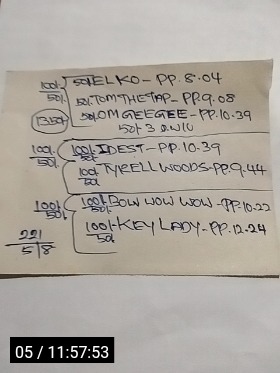 100/- 50/- ELKO - PP. 8.04
50/- 50/- TOM THE TAP - PP. 9.08
1350/- 50/- OM GEEGEE - PP. 10.39
50/- 3
100/- 100/- IDEST - PP. 10.39
50/- 50/-
100/- TYRELL WOODS - PP. 9.44
50/-
100/- 100/- BOW WOW WOW - PP. 10.22
50/- 50/-
100/- KEY LADY - PP. 12.24
50/-
221
5/8
05 / 11:57:53